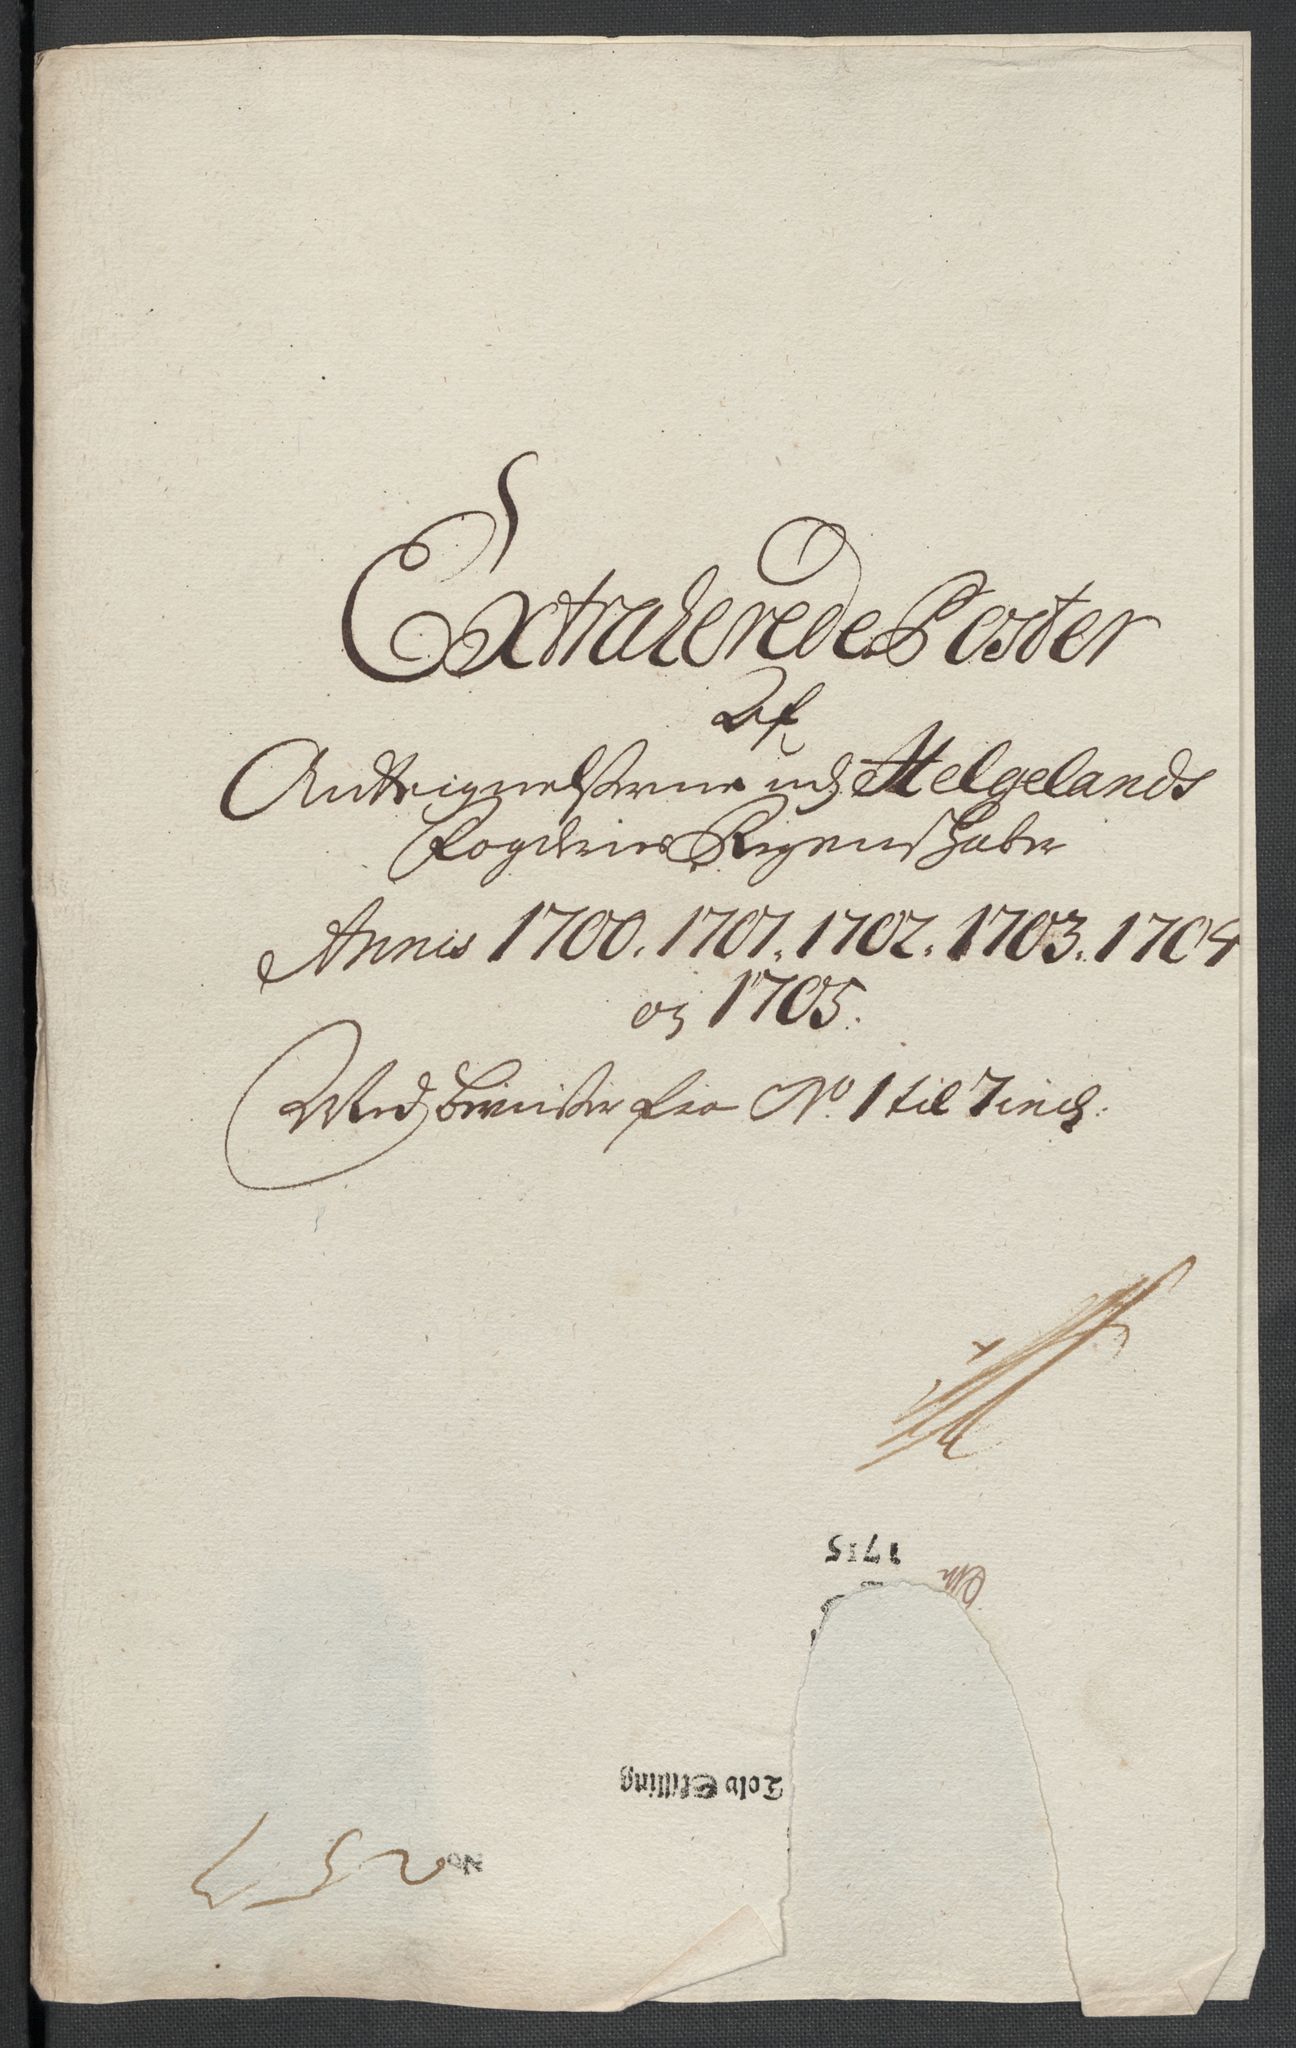 Extraherede Poster
Af
Antteignelserne udj Helgelands
Fogderies Regenskaber
Annis 1700. 1701. 1702. 1703. 1704
og 1705.
Med beviiser fra No. 1 til 7 incl.
1715
Tolv Skilling
No